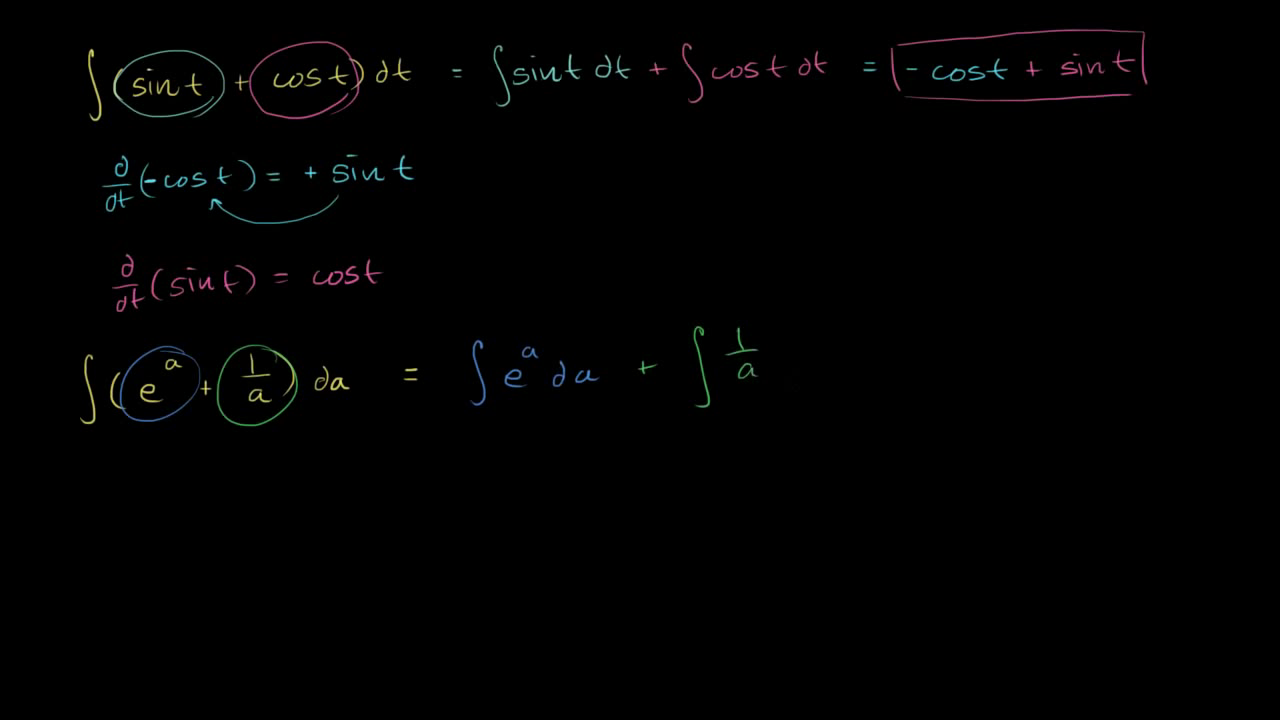 ∫(sin t + cos t) dt = ∫sin t dt + ∫cos t dt = -cos t + sin t
d/dt(-cos t) = + sin t
d/dt(sin t) = cos t
∫(e^a + 1/a) da = ∫e^a da + ∫1/a